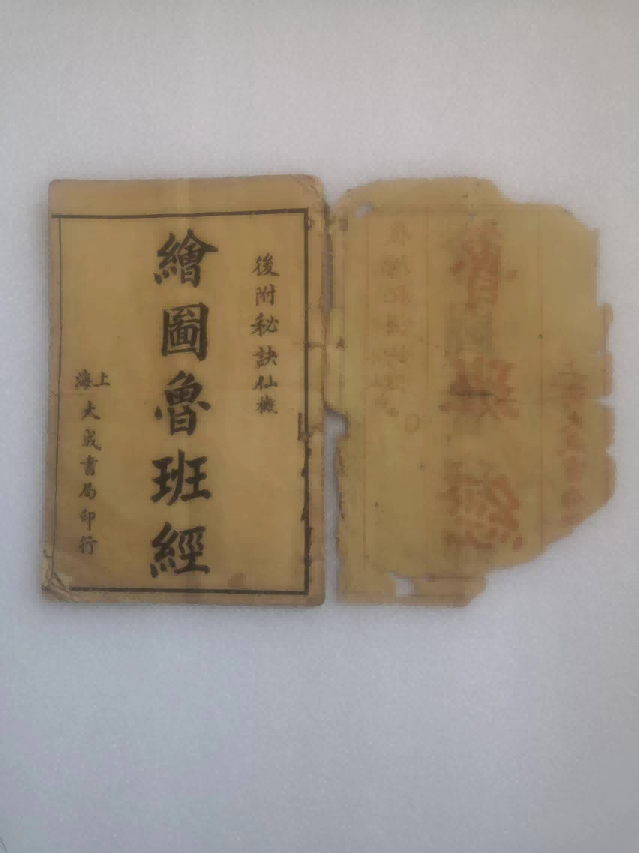 後附秘訣仙機
繪圖魯班經
上海
大成書局印行
魯
班
經